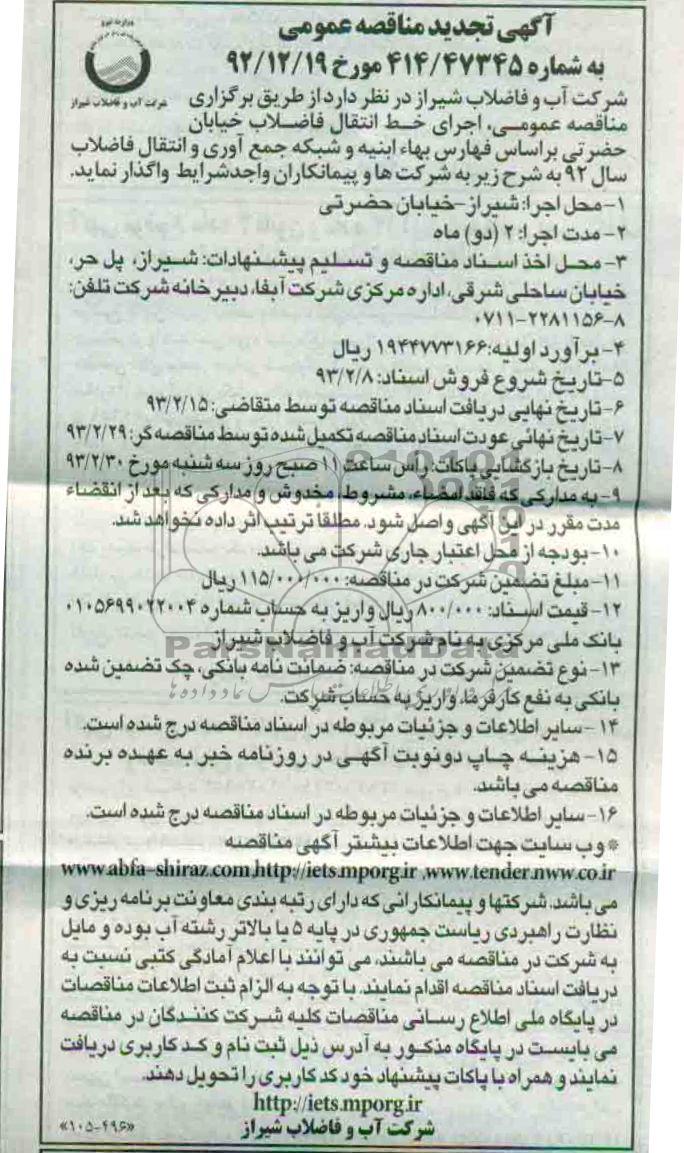 آگهی تجدید مناقصه عمومی
به شماره ۴۱۴/۴۷۳۴۵ مورخ ۹۲/۱۲/۱۹
شرکت آب و فاضلاب شیراز
شرکت آب و فاضلاب شیراز در نظر دارد از طریق برگزاری
مناقصه عمومی، اجرای خط انتقال فاضلاب خیابان
حضرتی براساس فهارس بهاء ابنیه و شبکه جمع آوری و انتقال فاضلاب
سال ۹۲ به شرح زیر به شرکت ها و پیمانکاران واجدشرایط واگذار نماید.
۱-محل اجرا: شیراز-خیابان حضرتی
۲-مدت اجرا: ۲ (دو) ماه
۳-محل اخذ اسناد مناقصه و تسلیم پیشنهادات: شیراز، پل حر،
خیابان ساحلی شرقی، اداره مرکزی شرکت آبفا، دبیرخانه شرکت تلفن:
۰۷۱۱-۲۲۸۱۱۵۶-۸
۴-برآورد اولیه: ۱۹۴۴۷۷۳۱۶۶ ریال
۵-تاریخ شروع فروش اسناد: ۹۳/۲/۸
۶-تاریخ نهایی دریافت اسناد مناقصه توسط متقاضی: ۹۳/۲/۱۵
۷-تاریخ نهائی عودت اسناد مناقصه تکمیل شده توسط مناقصه گر: ۹۳/۲/۲۹
۸-تاریخ بازگشایی پاکات: راس ساعت ۱۱ صبح روز سه شنبه مورخ ۹۳/۲/۳۰
۹-به مدارکی که فاقد امضاء، مشروط، مخدوش و مدارکی که بعد از انقضاء
مدت مقرر در این آگهی واصل شود. مطلقا ترتیب اثر داده نخواهد شد.
۱۰-بودجه از محل اعتبار جاری شرکت می باشد.
۱۱-مبلغ تضمین شرکت در مناقصه: ۱۱۵/۰۰۰/۰۰۰ ریال
۱۲-قیمت اسناد: ۸۰۰/۰۰۰ ریال واریز به حساب شماره ۰۱۰۵۶۹۹۰۲۲۰۰۴
بانک ملی مرکزی به نام شرکت آب و فاضلاب شیراز
ParsNamadData
۱۳-نوع تضمین شرکت در مناقصه: ضمانت نامه بانکی، چک تضمین شده
بانکی به نفع کارفرما، واریز به حساب شرکت.
۱۴-سایر اطلاعات و جزئیات مربوطه در اسناد مناقصه درج شده است.
۱۵-هزینه چاپ دونوبت آگهی در روزنامه خبر به عهده برنده
مناقصه می باشد.
۱۶-سایر اطلاعات و جزئیات مربوطه در اسناد مناقصه درج شده است.
*وب سایت جهت اطلاعات بیشتر آگهی مناقصه
www.abfa-shiraz.com,http://iets.mporg.ir ,www.tender.nww.co.ir
می باشد. شرکتها و پیمانکارانی که دارای رتبه بندی معاونت برنامه ریزی و
نظارت راهبردی ریاست جمهوری در پایه ۵ یا بالاتر رشته آب بوده و مایل
به شرکت در مناقصه می باشند، می توانند با اعلام آمادگی کتبی نسبت به
دریافت اسناد مناقصه اقدام نمایند. با توجه به الزام ثبت اطلاعات مناقصات
در پایگاه ملی اطلاع رسانی مناقصات کلیه شرکت کنندگان در مناقصه
می بایست در پایگاه مذکور به آدرس ذیل ثبت نام و کد کاربری دریافت
نمایند و همراه با پاکات پیشنهاد خود کد کاربری را تحویل دهند.
http://iets.mporg.ir
شرکت آب و فاضلاب شیراز
«۱۰۵-۴۹۶»